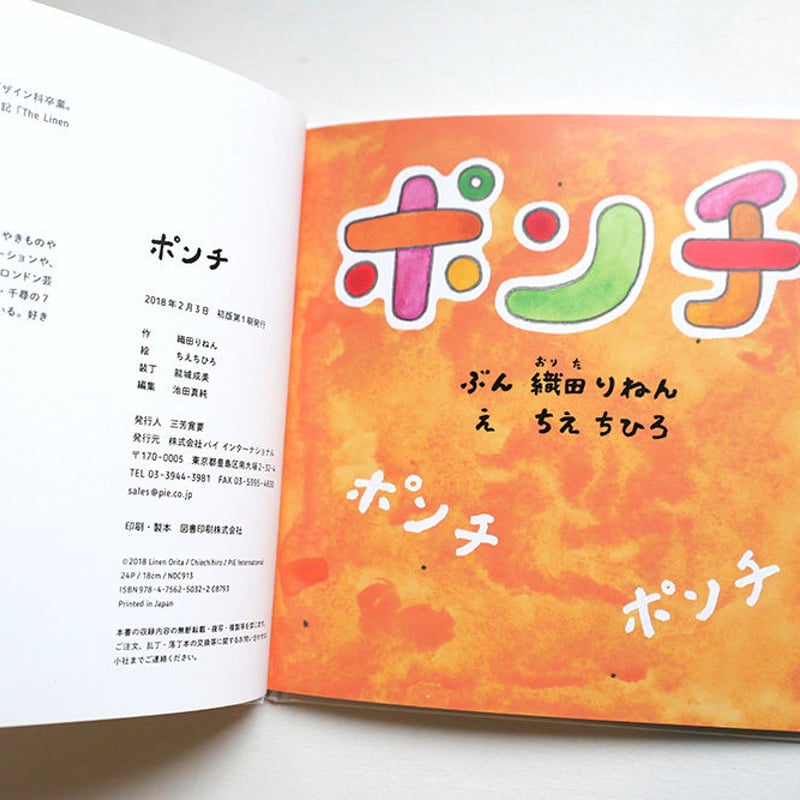 ザイン科卒業。
記「The Linen
やきものや
ーションや、
ロンドン芸
・千尋の7
いる。好き
ポンチ
2018年2月3日 初版第1刷発行
作 織田りねん
絵 ちえちひろ
装丁 能城成美
編集 池田真純
発行人 三芳寛要
発行元 株式会社パイ インターナショナル
〒170-0005 東京都豊島区南大塚2-32-4
TEL 03-3944-3981 FAX 03-5395-4830
sales@pie.co.jp
印刷・製本 図書印刷株式会社
©2018 Linen Orita / Chiechihiro / PIE International
24P / 18cm / NDC913
ISBN 978-4-7562-5032-2 C8793
Printed in Japan
本書の収録内容の無断転載・複写・複製等を禁じます。
ご注文、乱丁・落丁本の交換等に関するお問い合わせは、
小社までご連絡ください。
ポンチ
おりた
ぶん 織田りねん
え ちえ ちひろ
ポンチ
ポンチ